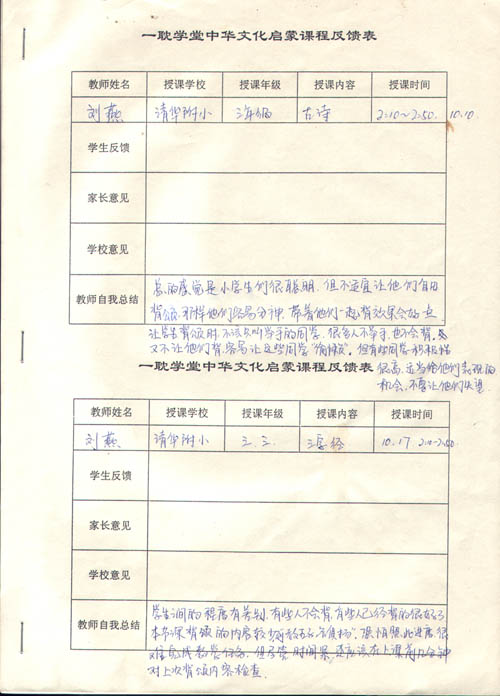 一耽学堂中华文化启蒙课程反馈表
教师姓名 授课学校 授课年级 授课内容 授课时间
刘燕 清华附小 三年级 古诗 2:10~2:50. 10.10
学生反馈
家长意见
学校意见
教师自我总结
总的感觉是小学生们很聪明，但不适宜让他们自由
背诵，那样他们容易分神，带着他们一起背效果会好一点
让学生背诵时，不该只叫举手的同学，很多人不举手，也不会背，
又不让他们背，容易让这些同学"偷懒"。但有些同学积极性
很高，应当给他们表现的
机会，不要让他们失望
一耽学堂中华文化启蒙课程反馈表
教师姓名 授课学校 授课年级 授课内容 授课时间
刘燕 清华附小 三.三. 三字经 10.17. 2:10-2:50.
学生反馈
家长意见
学校意见
教师自我总结
学生间的程度有差别，有些人不会背，有些人已经背的很好了
本节课背诵的内容较少
难完成教学任务，但尽管时间紧，还应该在上课前几分钟
对上次背诵内容检查.